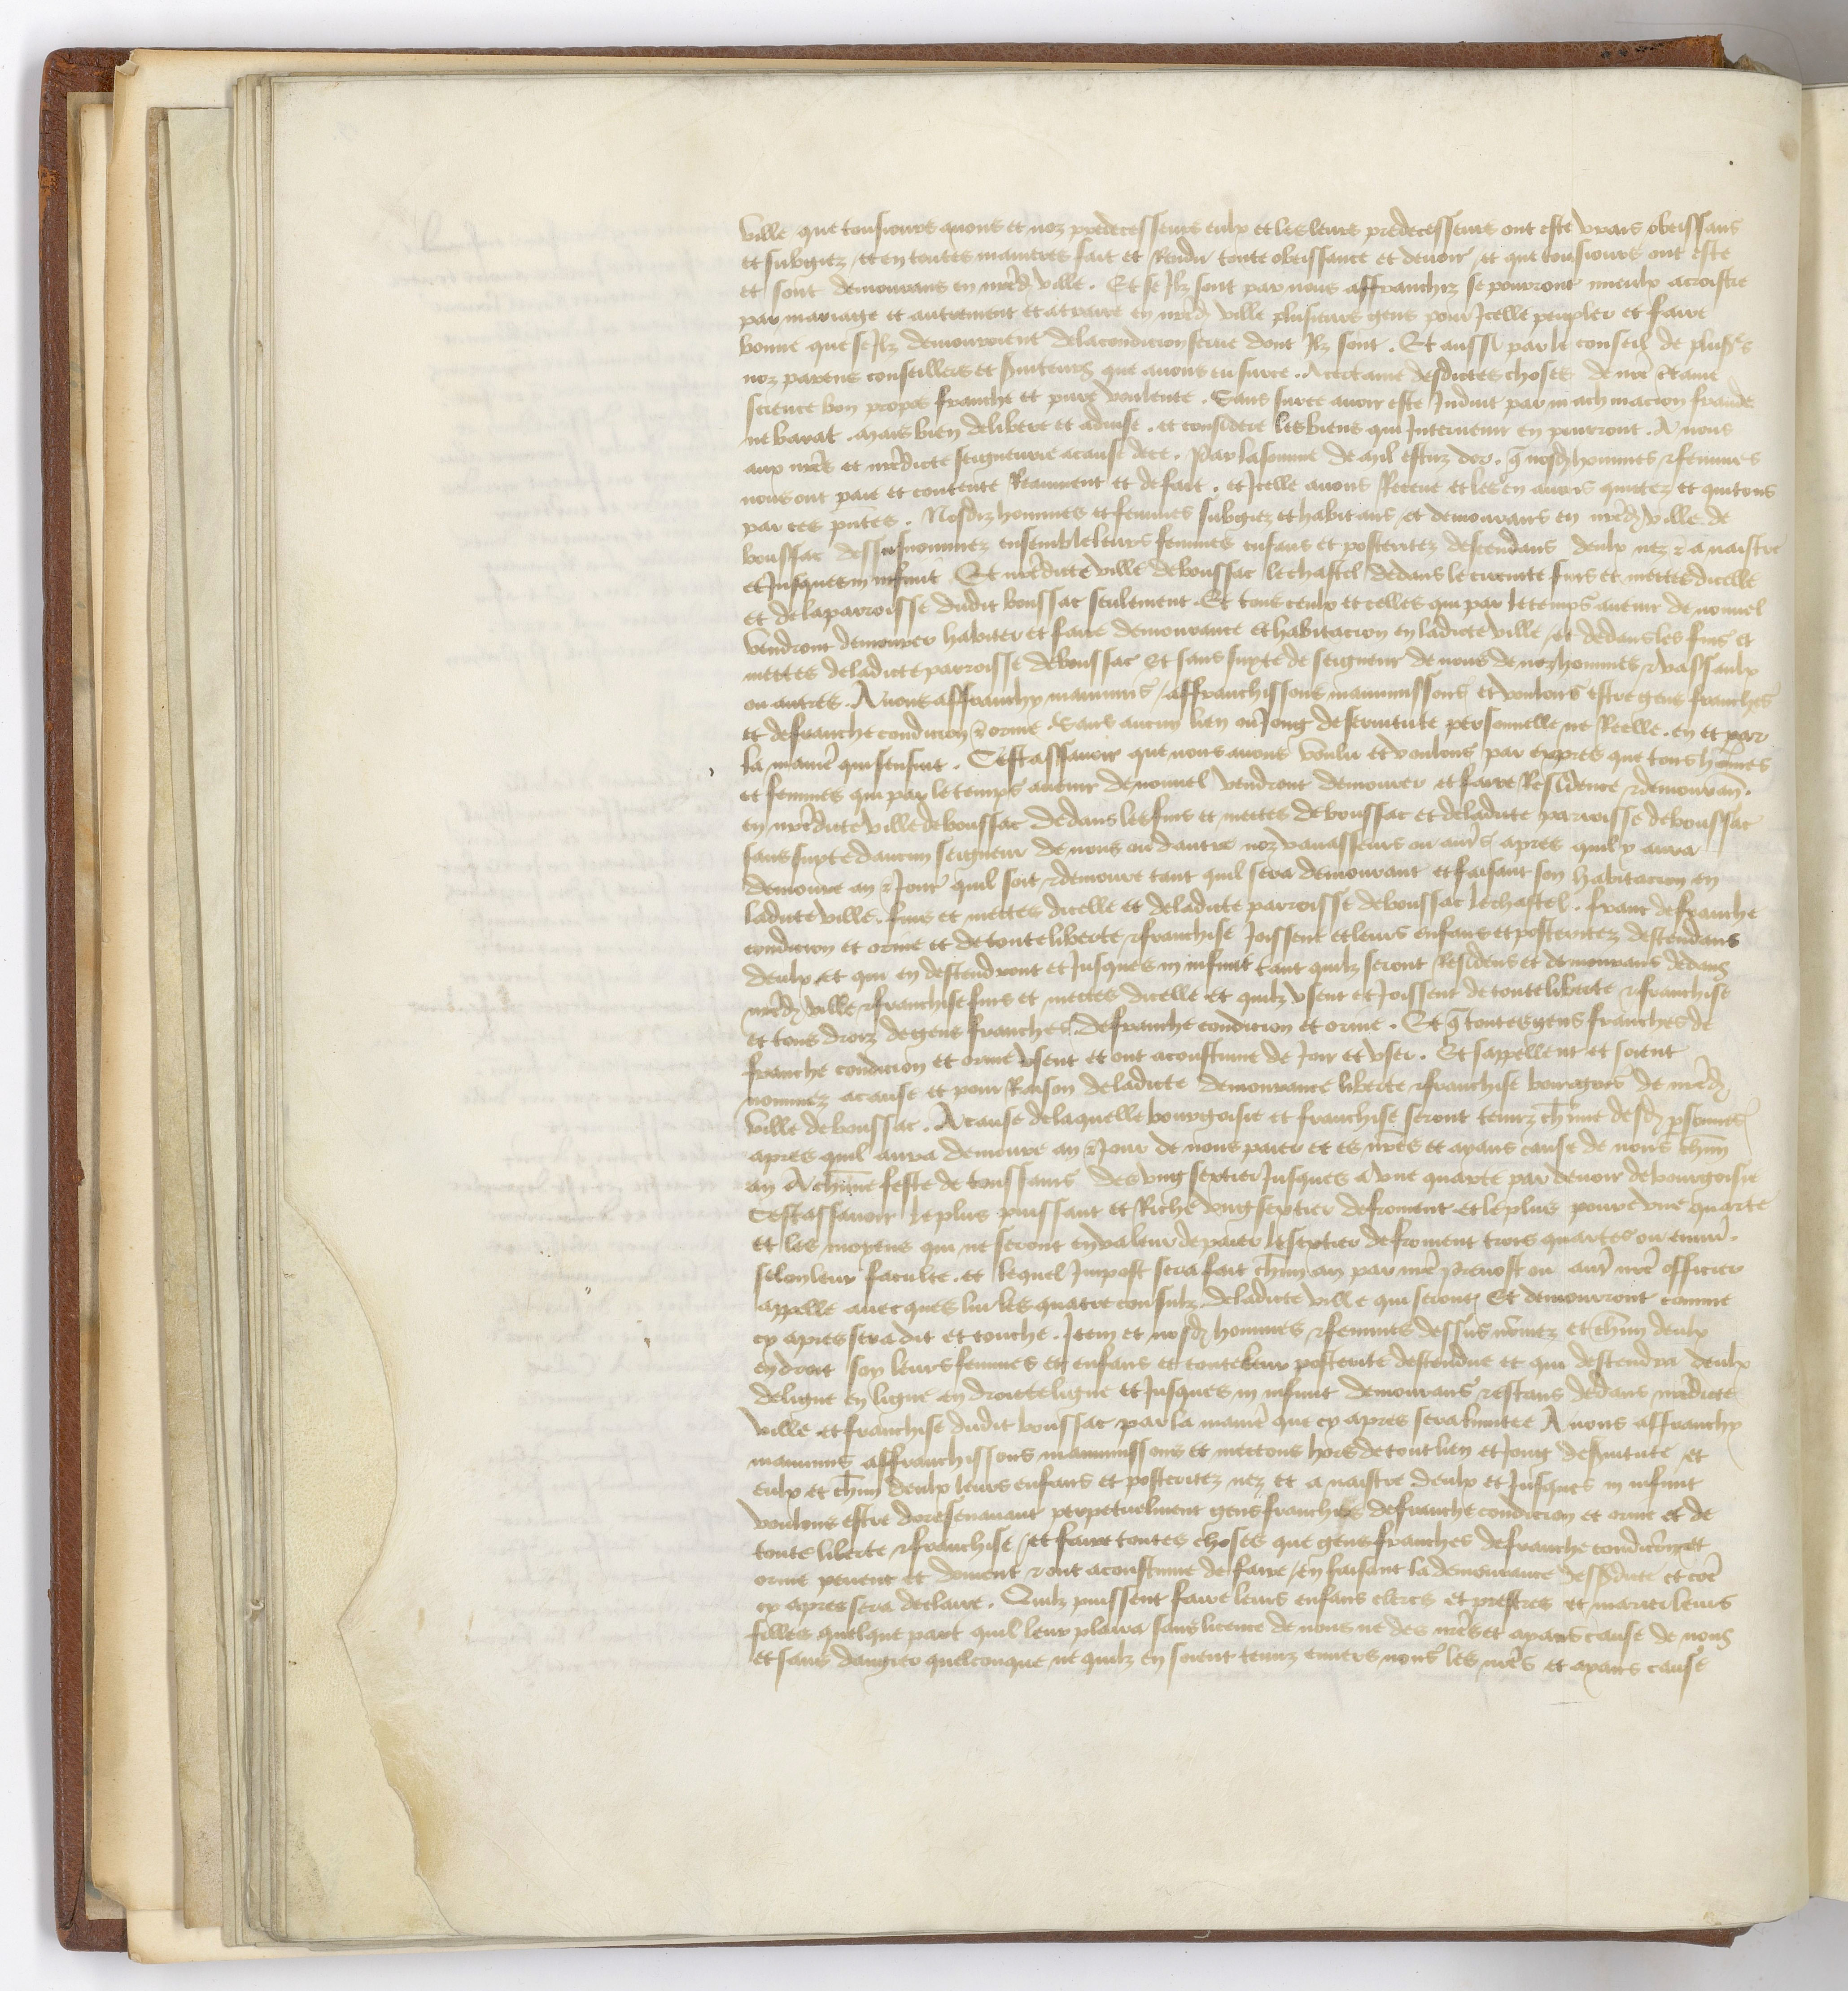 ville que tousiours auons et noz predecesseurs eulx et les leurs predecesseurs ont este vrais obeissans
et subgiez / et en toutes manieres fait et Rendu toute obeissance et deuoir / et que tousiours ont este
et sont demourans en nred ville . Et se Ilz sont par nous affranchiz se pourront mieulx acroistre
par mariage et autrement et atraire en nred ville plusieurs gens pour Icelle peupler et faire
bonne que se Ilz demouroient de la condicion serue dont Ilz sont . Et aussi par le conseil de plus's
noz parens conseillers et s'uiteurs que auons en surce . Acertaine desdictes choses de nre c'taine
science bon propos franche et pure voulente . Sans surce auoir este Induit par machinacion fraude
ne barat . Mais bien delibere et aduise . et considere les biens qui Interuenir en pourront . A nous
aux nres et nredicte seigneurie a cause de ce . Par la somme de mil escuz dor . q nosd hommes & femmes
nous ont paie et contente Reaument et de fait . et Icelle auons Receue et les en auons quictez et quictons
par ces pntes . Nosdiz hommes et femmes subgiez et habitans / et demourans en nred ville de
boussac dessusnommez ensemble leurs femmes enfans et posteritez descendans deulx nez & a naistre
et Jusques in infinit Et nredicte ville de boussac le chastel dedans le circuite fins et mettes dicelle
et de la parroisse dudit boussac seulement . Et tous ceulx et celles qui par le temps auenir de nouuel
vendront demourer habiter et faire demourance et habitacion en ladicte ville / et dedans les fins et
mettes de ladicte parroisse de boussac Et sans supte de seigneur de nous de noz hommes & vassaulx
ou autres . Auons affranchy manumis / affranchissons manumissons et voulons estre gens franches
et de franche condicion & orine Sans aucun lien ou Joug de seruitute personnelle ne Reelle . en et par
la manie' qui sensuit . Cest assauoir que nous auons voulu et voulons par expres que tous ho'mes
et femmes qui par le temps auenir de nouuel vendront demourer et faire Residence & demouran' .
en nredicte ville de boussac dedans les fins et mettes de boussac et de ladicte parroisse de boussac
sans supte daucun seigneur de nous ou dautre noz vauasseurs ou aut's apres quil y aura
demoure an & Jour quil soit & demoure tant quil sera demourant et faisant son habitacion en
ladicte ville . fins et mettes dicelle et de ladicte parroisse de boussac le chastel . franc de franche
condicion et orine et de toute liberte & franchise Joissent et leurs enfans et posteritez descendans
deulx et qui en descendront et Jusques in infinit tant quilz seront Residens et demourans dedans
nred ville & franchise fins et mettes dicelle et quilz vsent et Joissent de toute liberte & franchise
et tous droiz de gens franches de franche condicion et orine . Et q toutes gens franches de
franche condicion et orine vsent et ont acoustume de Joir et vser . Et sappellent et soient
nommez a cause et pour Raison de ladicte demourance liberte & franchise bourgois de nred
ville de boussac . A cause de laquelle bourgoisie et franchise seront tenuz ch'une desd p'sonnes
apres quil aura demoure an & Jour de nous paier et es nres et ayans cause de nous ch'un
an A ch'une feste de toussains des vng sextier Jusques a vne quarte par deuoir de bourgoisie
Cest assauoir le plus puissant et Riche vng sextier de froment et le plus poure vne quarte
et les moyens qui ne seront en valeur de paier le sextier de froment trois quartes ou enuir' .
selon leur faculte . et lequel Impost sera fait ch'un an par nre preuost ou aut' nre officier
appelle auecques lui les quatre consulz de ladicte ville qui seront Et demourront comme
cy apres sera dit et touche . Item et nosd hommes & femmes dessus no'mez et ch'un deulx
endroit soy leurs femmes et enfans et toute leur posterite descendue et qui descendra deulx
de ligne en ligne en droicte ligne et Jusques in infinit demourans & estans dedans nredicte
ville et franchise dudit boussac par la manie' que cy apres sera limitee Auons affranchy
manumis affranchissons manumissons et mettons hors de tout lien et Joug de s'uitute / et
eulx et ch'un deulx leurs enfans et posteritez nez et a naistre deulx et Jusques in infinit
voulons estre doresenauant perpetuelment gens franches de franche condicion et orine et de
toute liberte & franchise / et faire toutes choses que gens franches de franche condicion et
orine peuent et doiuent & ont acoustume de faire / en faisant la demourance dessusdicte et co'e
cy apres sera declaire . Quilz puissent faire leurs enfans clercs et prestres et marier leurs
filles quelque part quil leur plaira sans licence de nous ne des nres et ayans cause de nous
et sans dangier quelconque ne quilz en soient tenuz enuers nous les nres et ayans cause